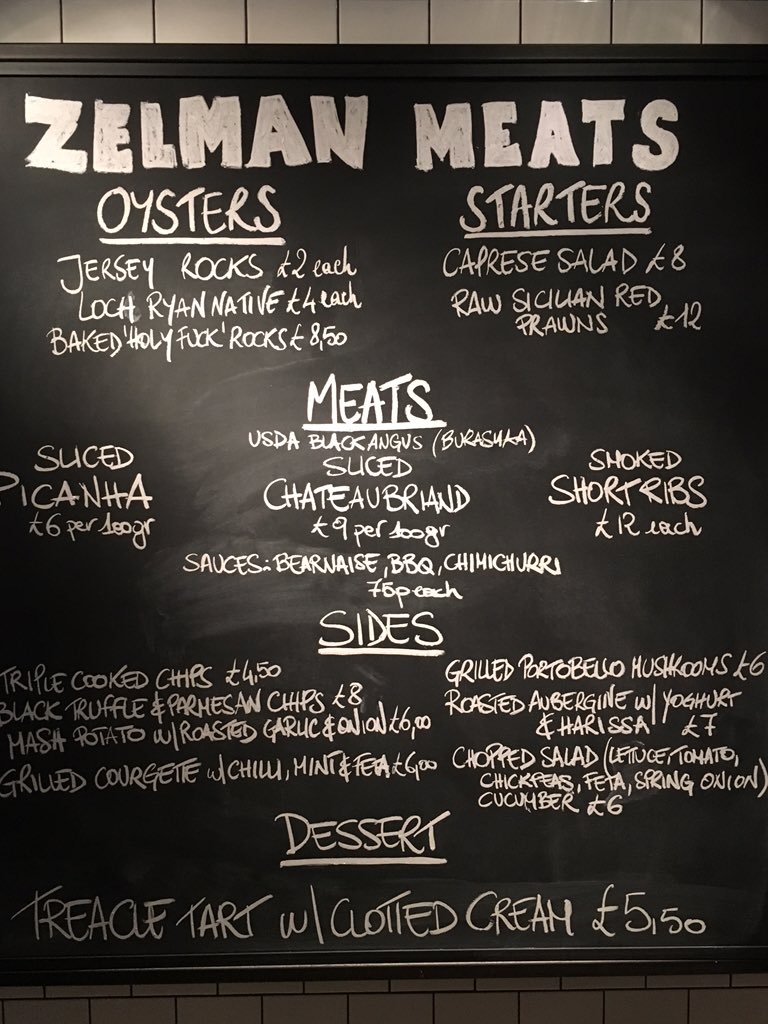 ZELMAN MEATS
OYSTERS
JERSEY ROCKS £2 each
LOCH RYAN NATIVE £4 each
BAKED 'HOLY FUCK' ROCKS £8,50
STARTERS
CAPRESE SALAD £8
RAW SICILIAN RED
PRAWNS £12
MEATS
USDA BLACK ANGUS
SLICED
PICANHA
£6 per 100gr
SLICED
CHATEAUBRIAND
£9 per 100gr
SMOKED
SHORTRIBS
£12 each
SAUCES: BEARNAISE, BBQ, CHIMICHURRI
75p each
SIDES
TRIPLE COOKED CHIPS £4,50
BLACK TRUFFLE & PARMESAN CHIPS £8
MASH POTATO W/ ROASTED GARLIC & ONION £6,00
GRILLED COURGETTE W/ CHILLI, MINT & FETA £6,00
GRILLED PORTOBELLO MUSHROOMS £6
ROASTED AUBERGINE W/ YOGHURT
& HARISSA £7
CHOPPED SALAD (LETUCE, TOMATO,
CHICKPEAS, FETA, SPRING ONION)
CUCUMBER £6
DESSERT
TREACLE TART W/ CLOTTED CREAM £5,50